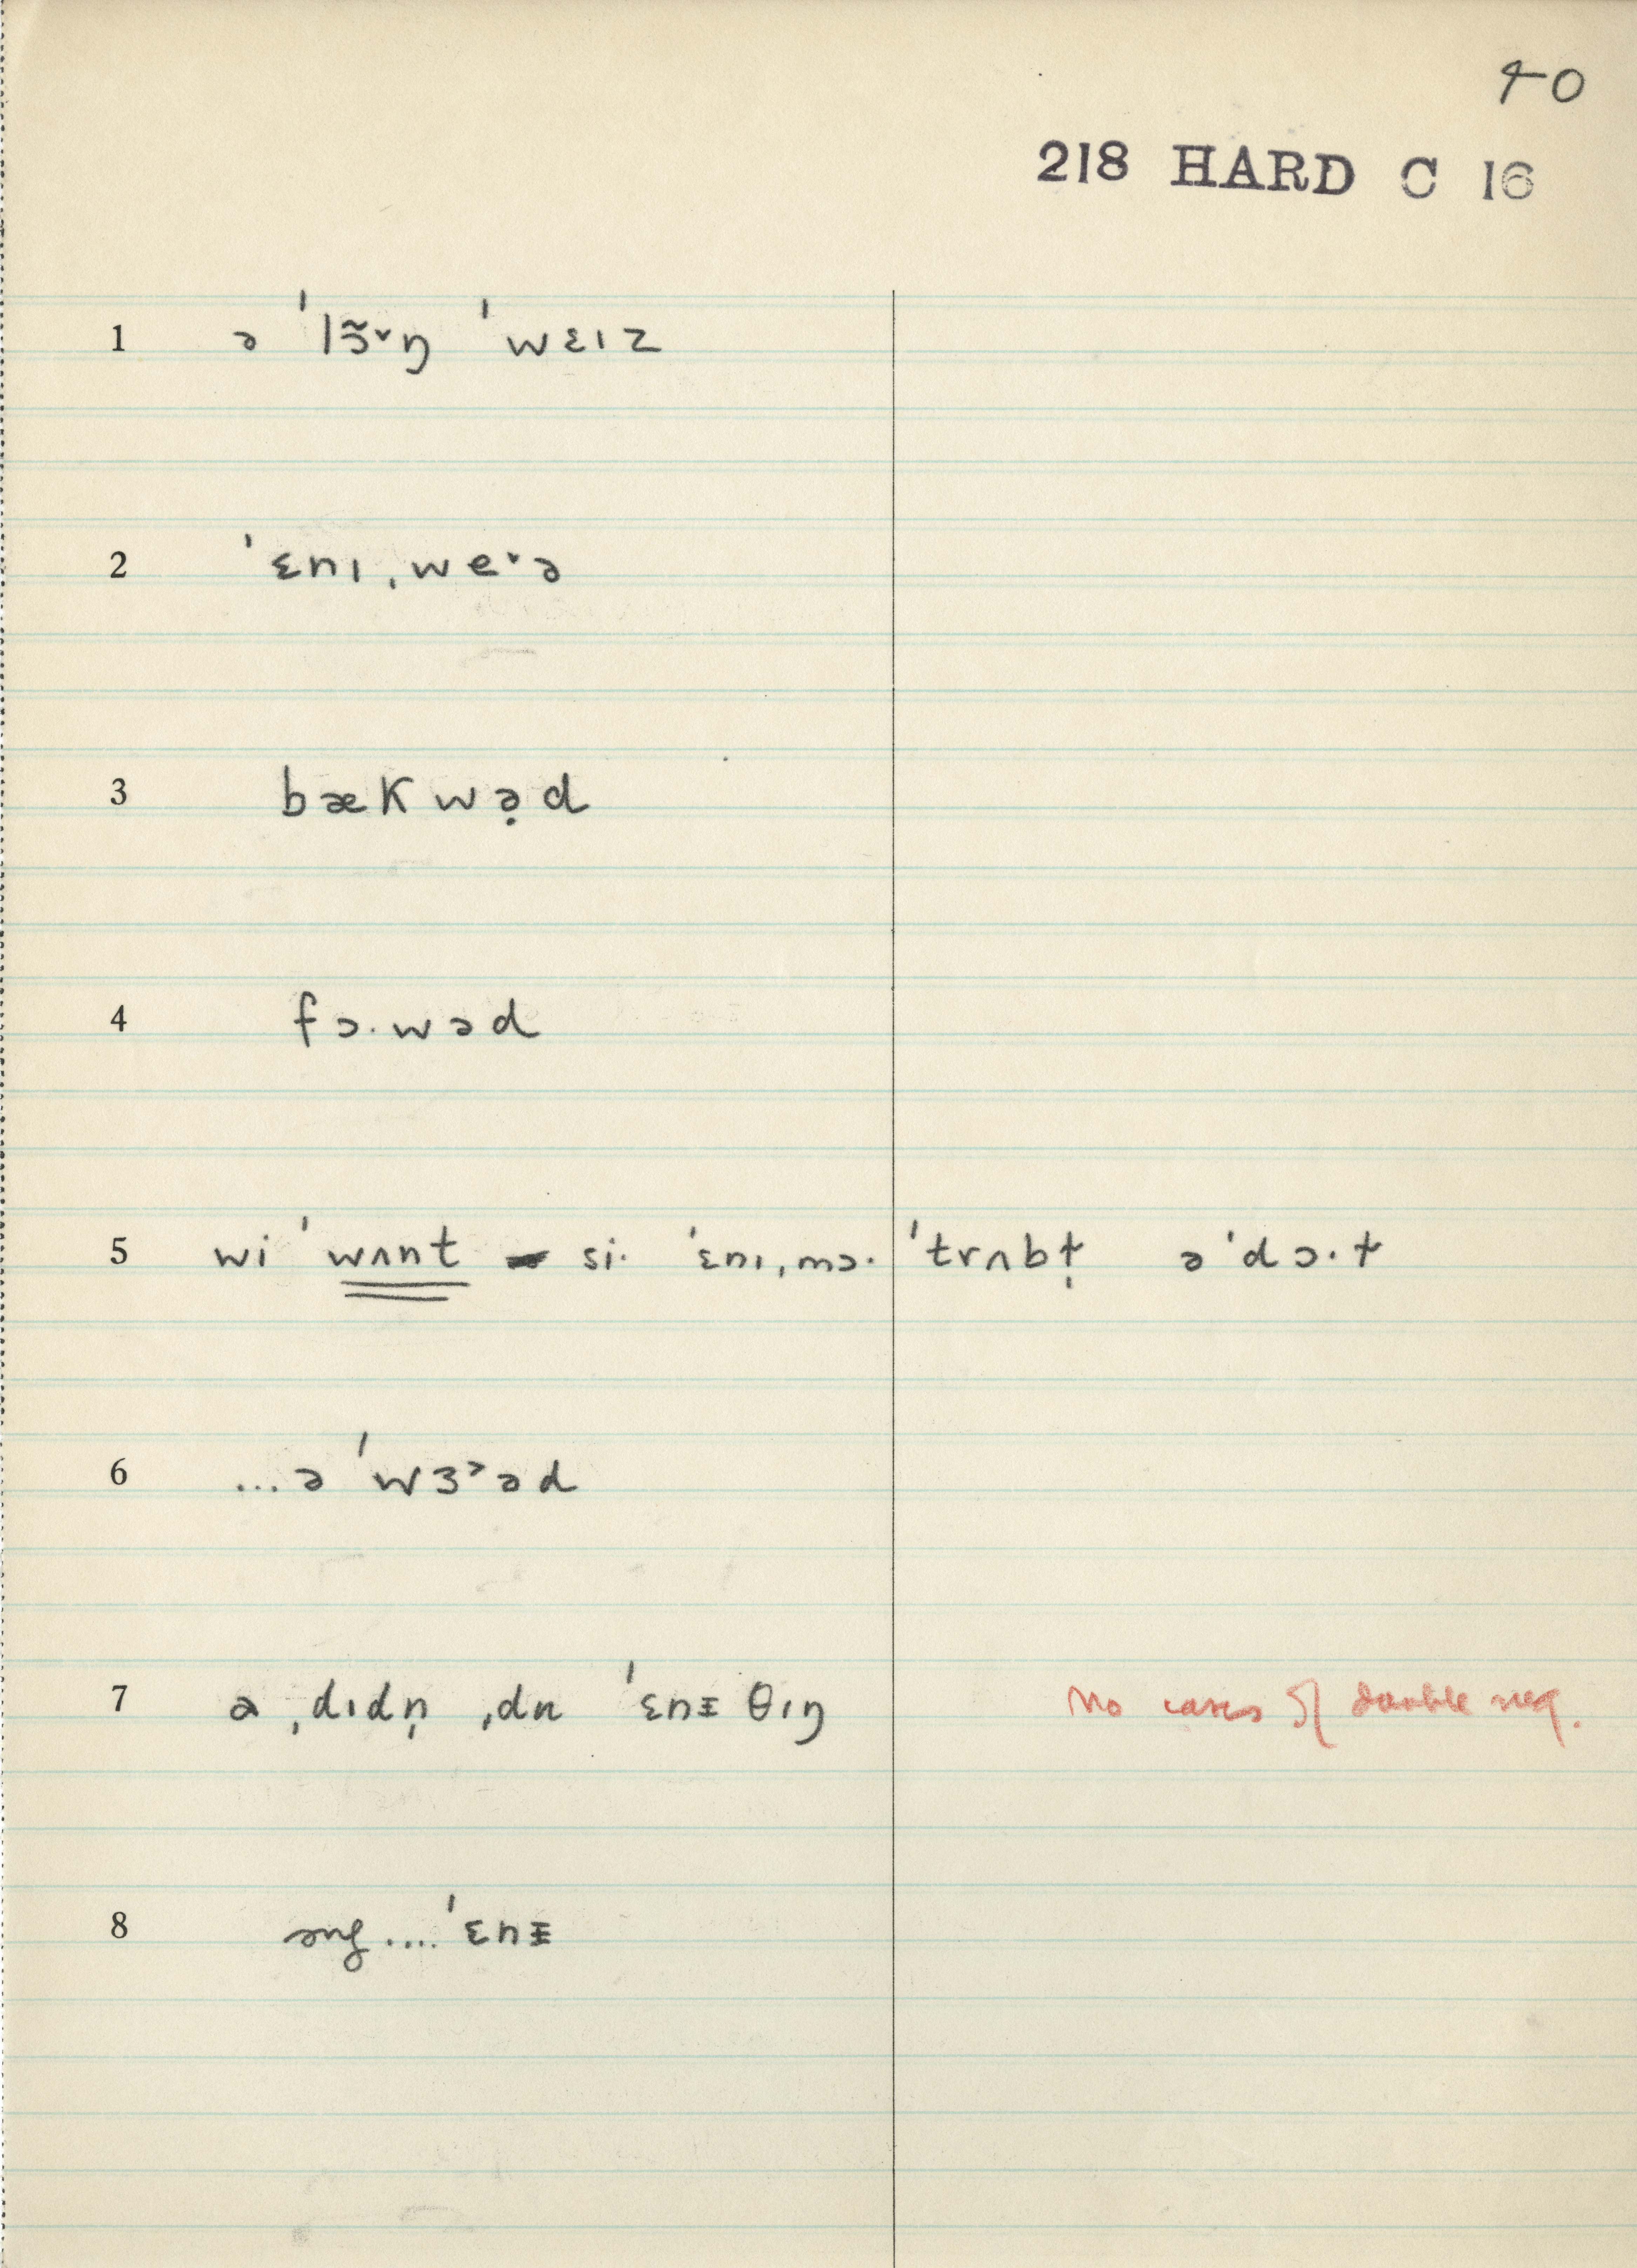 40
218 HARD C 16
1 ə ˈlɔ̃˅ŋ ˈwɛɪz
2 ˈɛnɪˌwe˅ə
3 bækwə̣d
4 fɔ·wəd
5 wi ˈwʌnt si· ˈɛnɪˌmɔ· ˈtrʌbɫ̩ əˈdɔ·ɫ
6 ...ə ˈwɜ˃əd
7 a ˌdɪdn̩ ˌdu ˈɛnɪ̵θɪŋ No cases of double neg.
8 sug....ˈɛnɪ̵